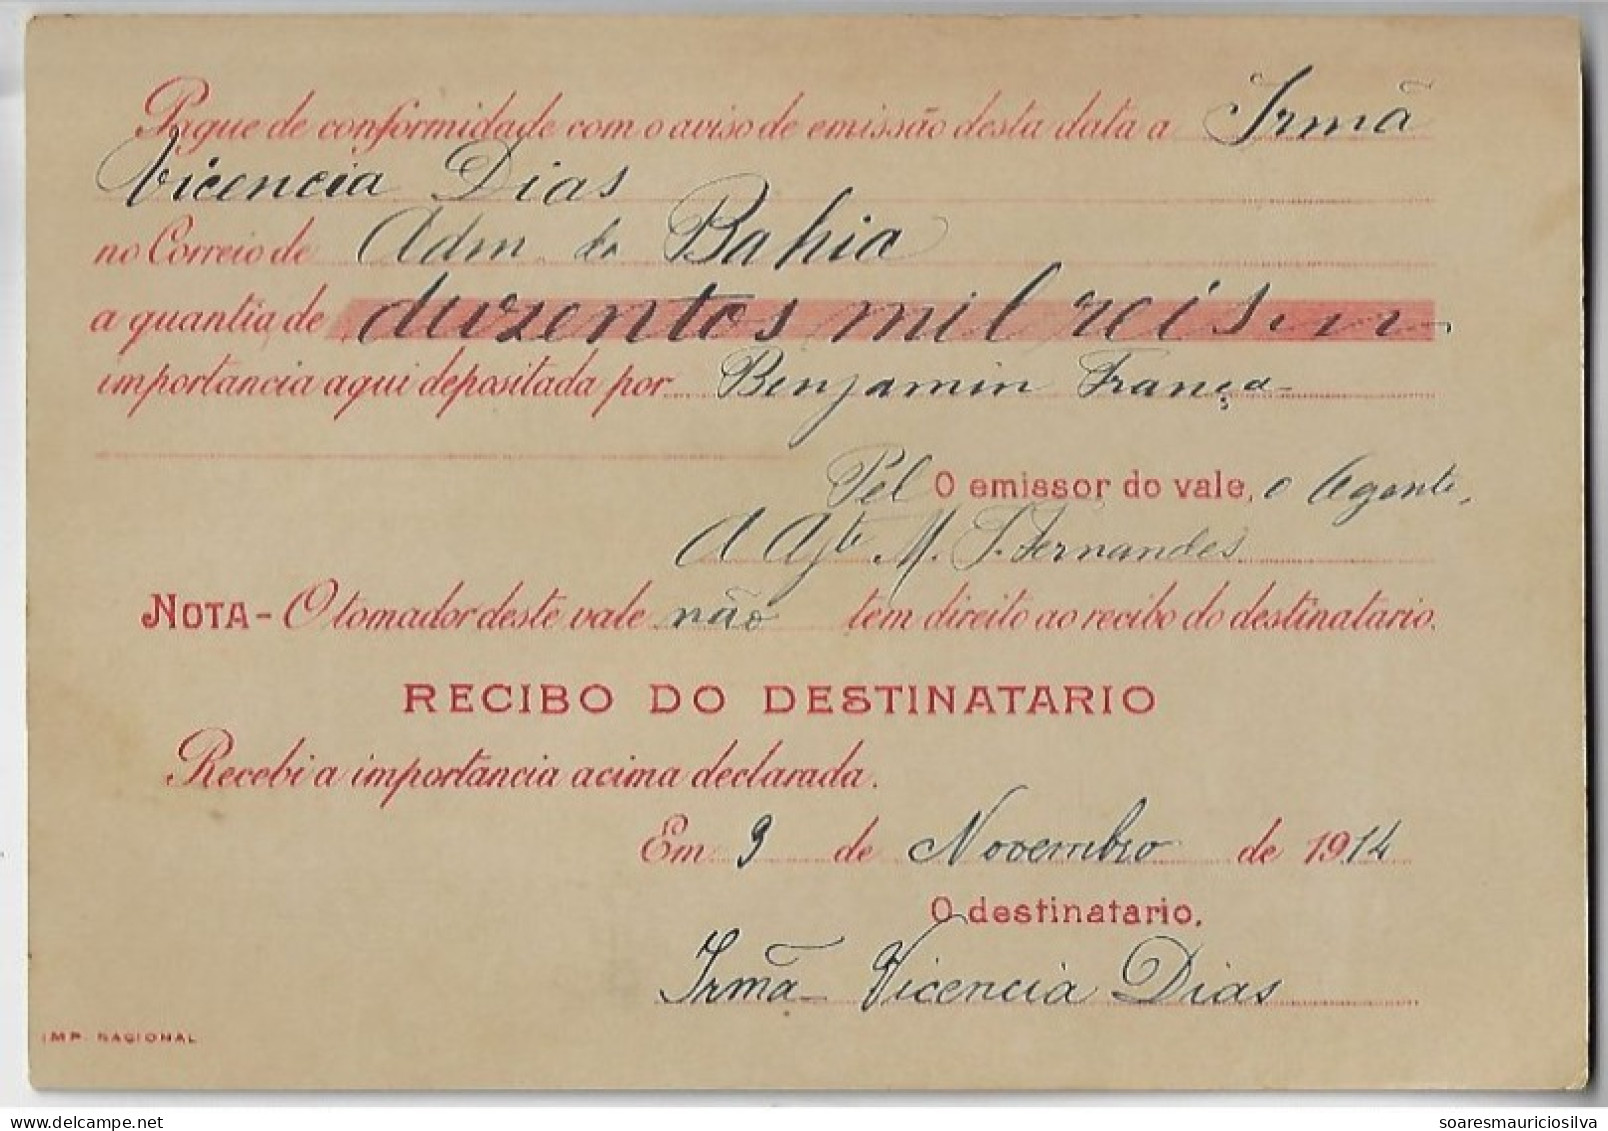 Pague de conformidade com o aviso de emissão desta data a Irmã
Vicencia Dias
no Correio de Adm. da Bahia
a quantia de duzentos mil reis
importancia aqui depositada por Benjamin França
Pel O emissor do vale, o Agente,
A Ajte M. S. Fernandes
NOTA - O tomador deste vale não tem direito ao recibo do destinatario.
RECIBO DO DESTINATARIO
Recebi a importancia acima declarada.
Em 9 de Novembro de 1914
O destinatario,
Irmã Vicencia Dias
IMP. NACIONAL
soaresmauriciosilva